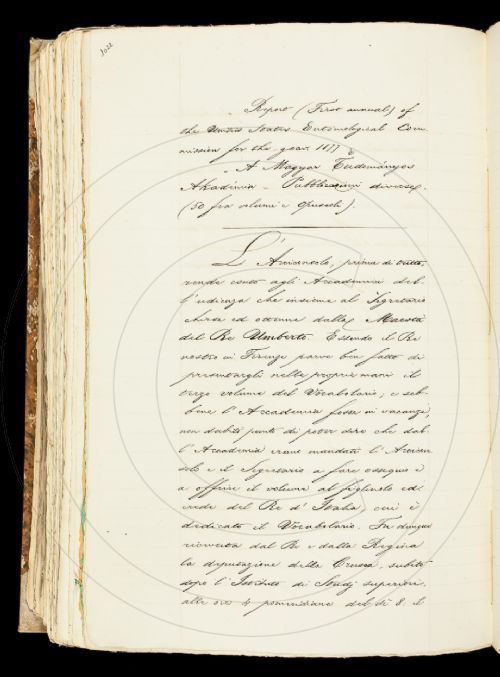 1022
Report (First annual) of
the United States Entomological Com
mission for the year 1877
"A Magyar Tudományos
Akadémia - Pubblicazioni diverse,
(50 fra volumi e opuscoli).
L'Arciconsolo, prima di tutto,
rende conto agli Accademici del-
l'udienza che insieme al Segretario
chiese ed ottenne dalla Maestà
del Re Umberto. Essendo il Re
nostro in Firenze parve ben fatto di
presentargli nelle proprie mani il
terzo volume del Vocabolario; e seb-
bene l'Accademia fosse in vacanze,
non dubitò punto di poter dire che dal-
l'Accademia erano mandati l'Arcicon
solo e il Segretario a fare ossequio e
a offrire il volume al figliuolo ed
erede del Re d'Italia, cui è
dedicato il Vocabolario. Fu dunque
ricevuta dal Re e dalla Regina
la deputazione della Crusca, subito
dopo l'Istituto di Studj superiori,
alle ore pomeridiane del dì 8 il